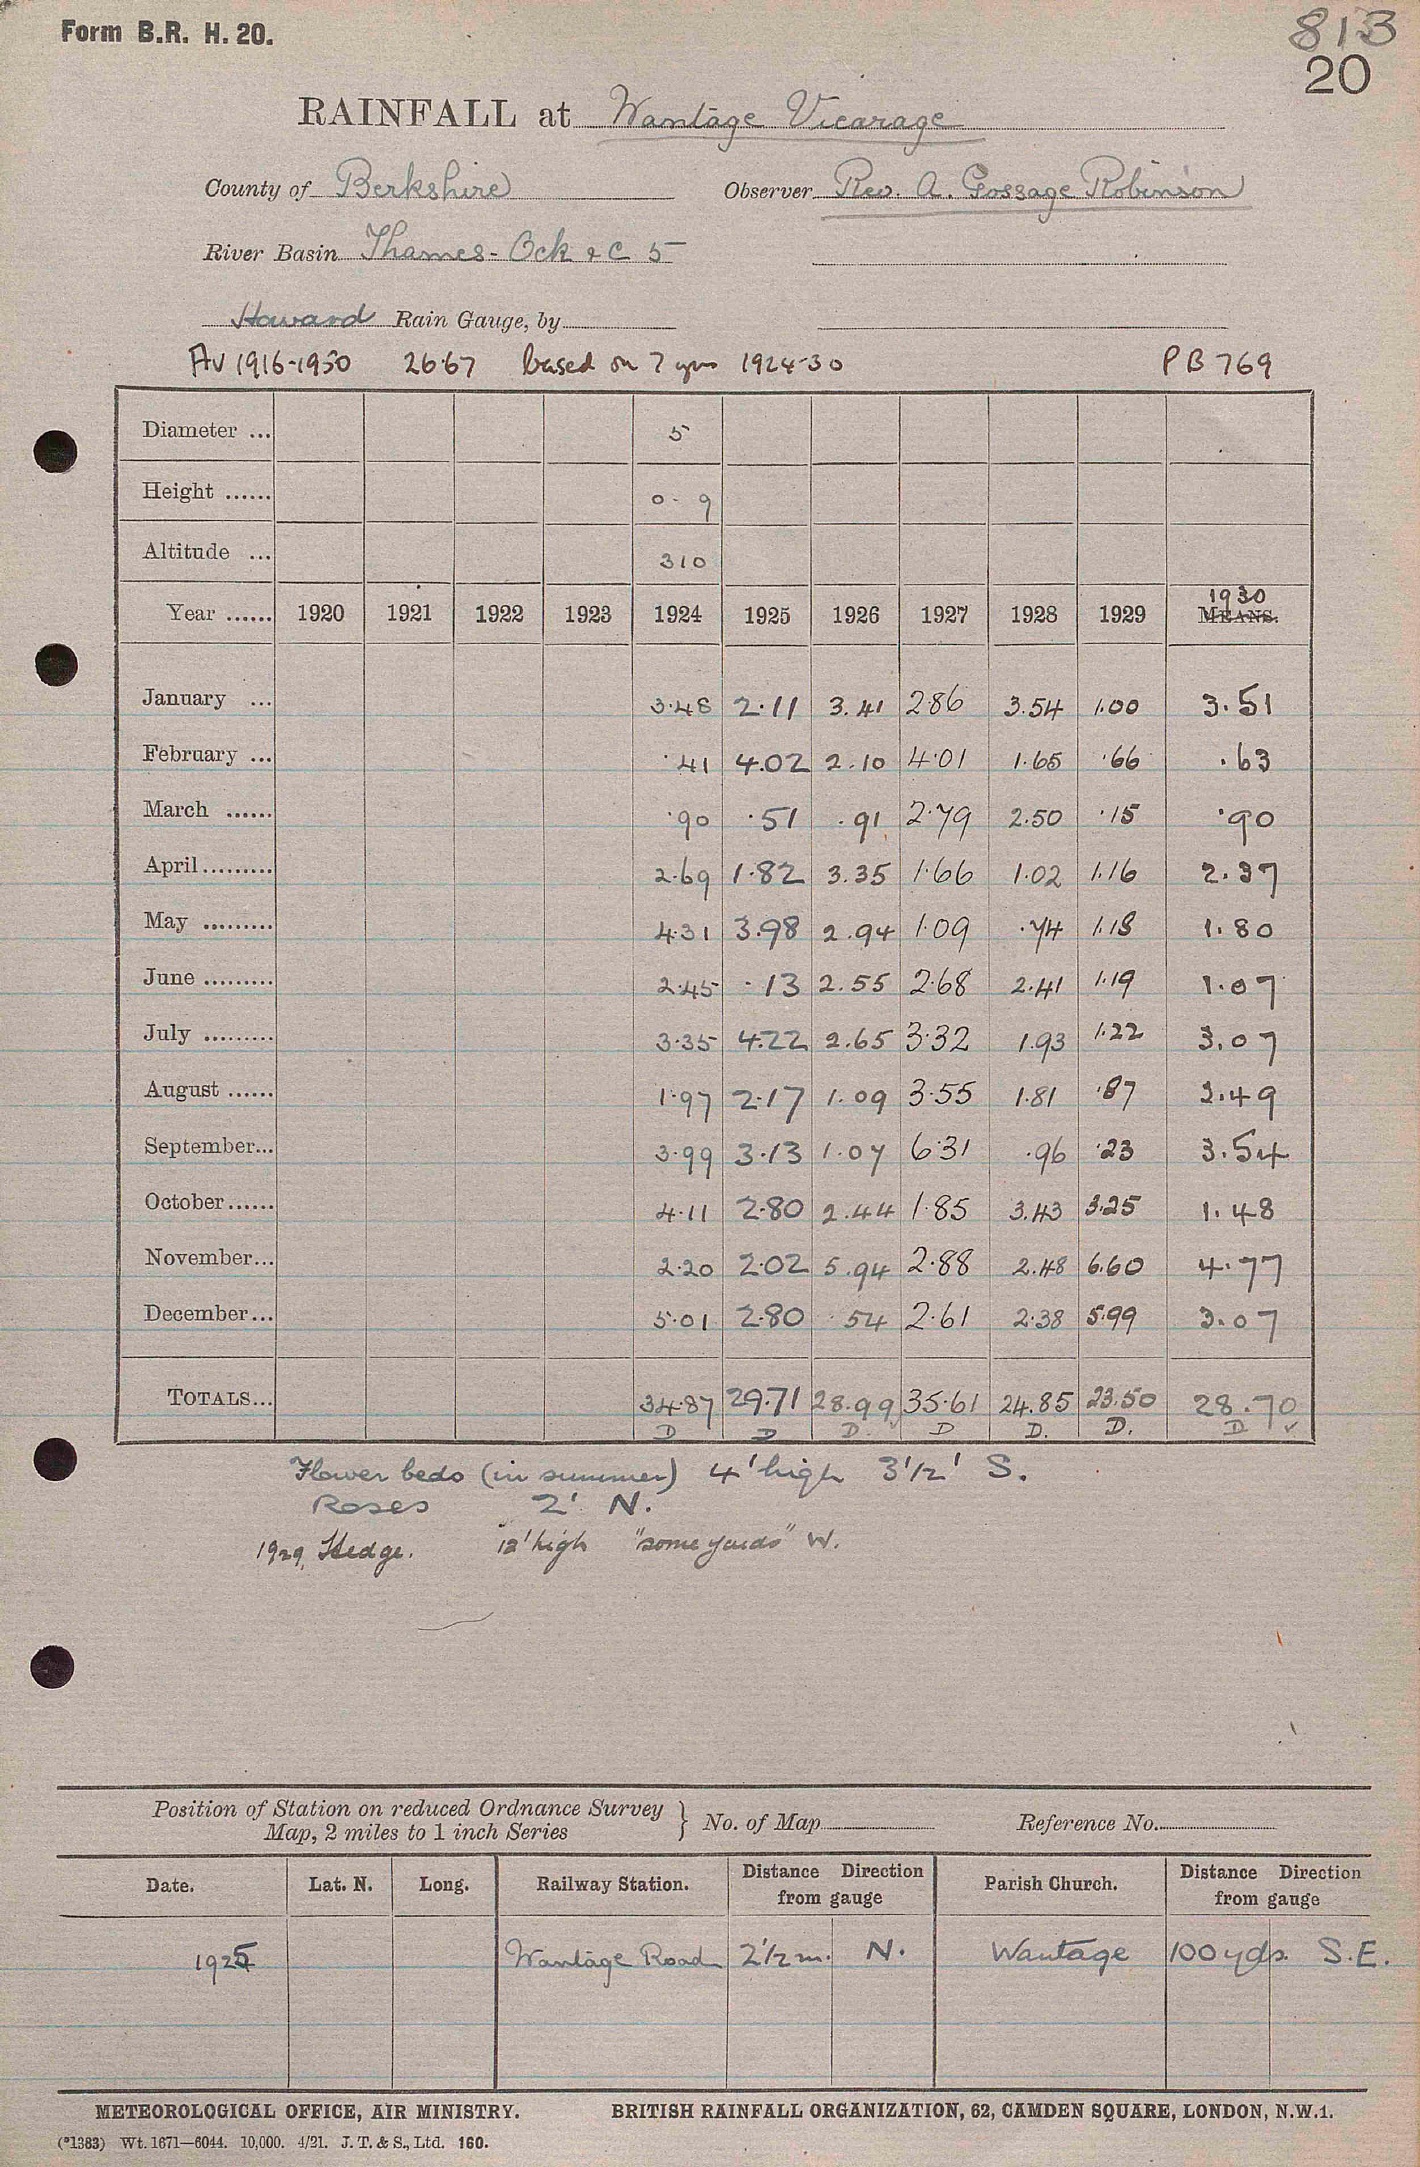 Form B.R. H. 20.
813
20
RAINFALL at Wantage Vicarage
County of Berkshire Observer Rev. A. Gossage Robinson
River Basin Thames - Ock & C 5
Howard Rain Gauge, by
Av 1916-1950 26.67 based on 7 yrs 1924-30 PB 769
Diameter ... 5
Height ...... 0 - 9
Altitude ... 310
Year ...... 1920 1921 1922 1923 1924 1925 1926 1927 1928 1929 1930 MEANS.
January ... 3.48 2.11 3.41 2.86 3.54 1.00 3.51
February ... .41 4.02 2.10 4.01 1.65 .66 .63
March ...... .90 .51 .91 2.79 2.50 .15 .90
April ......... 2.69 1.82 3.35 1.66 1.02 1.16 2.37
May ......... 4.31 3.98 2.94 1.09 .74 1.18 1.80
June ......... 2.45 .13 2.55 2.68 2.41 1.19 1.07
July ......... 3.35 4.22 2.65 3.32 1.93 1.22 3.07
August ...... 1.97 2.17 1.09 3.55 1.81 .87 2.49
September... 3.99 3.13 1.07 6.31 .96 .23 3.54
October...... 4.11 2.80 2.44 1.85 3.43 3.25 1.48
November... 2.20 2.02 5.94 2.88 2.48 6.60 4.77
December... 5.01 2.80 .54 2.61 2.38 5.99 3.07
TOTALS... 34.87 29.71 28.99 35.61 24.85 23.50 28.70
D D D. D D. D. D ✓
Flower beds (in summer) 4' high 3'1/2' S.
Roses 2' N.
1929, Hedge. 12' high "some yards" W.
Position of Station on reduced Ordnance Survey
Map, 2 miles to 1 inch Series } No. of Map Reference No.
Date. Lat. N. Long. Railway Station. Distance Direction from gauge Parish Church. Distance Direction from gauge
1925 Wantage Road 2 1/2 m. N. Wantage 100 yds. S.E.
METEOROLOGICAL OFFICE, AIR MINISTRY. BRITISH RAINFALL ORGANIZATION, 62, CAMDEN SQUARE, LONDON, N.W.1.
(*1383) Wt. 1671—6044. 10,000. 4/21. J. T. & S., Ltd. 160.